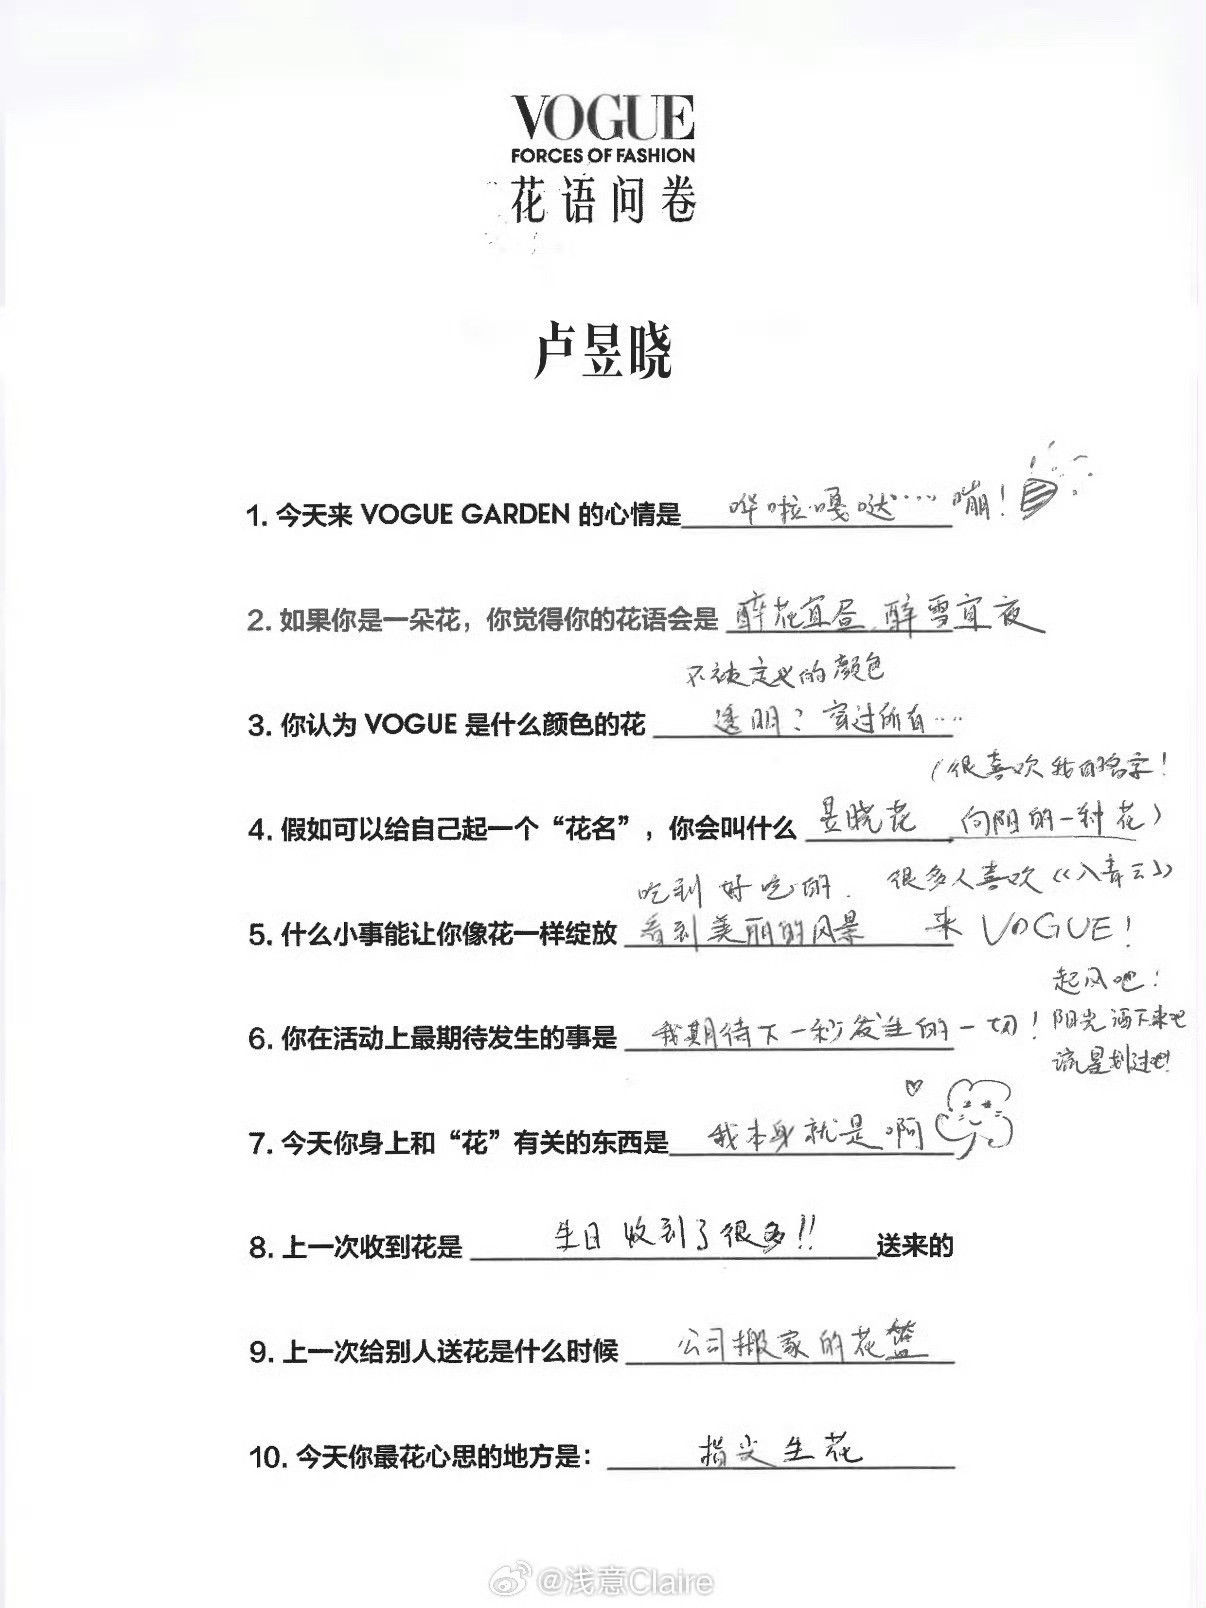 VOGUE
FORCES OF FASHION
花语问卷
卢昱晓
1. 今天来 VOGUE GARDEN 的心情是 哗啦嘎哒…… 嘣！
2. 如果你是一朵花，你觉得你的花语会是 醉花宜昼，醉雪宜夜
不被定义的颜色
3. 你认为 VOGUE 是什么颜色的花 透明？穿过所有……
（很喜欢我的名字！
4. 假如可以给自己起一个“花名”，你会叫什么 昱晓花 向阳的一种花）
吃到好吃的. 很多人喜欢《入青云》
5. 什么小事能让你像花一样绽放 看到美丽的风景 来 VOGUE！
起风吧！
6. 你在活动上最期待发生的事是 我期待下一秒发生的一切！ 阳光洒下来吧
流星划过吧！
7. 今天你身上和“花”有关的东西是 我本身就是啊
8. 上一次收到花是 生日收到了很多!! 送来的
9. 上一次给别人送花是什么时候 公司搬家的花篮
10. 今天你最花心思的地方是： 指尖生花
@浅意Claire